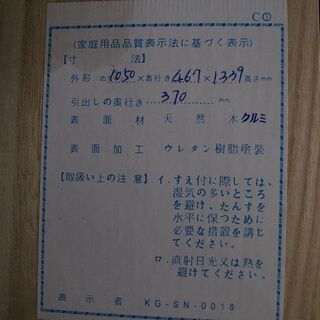 CO
(家庭用品品質表示法に基づく表示)
【寸 法】
外形 巾1050×奥行き467×1339高さmm
引出しの奥行き…370……mm
表面材 天然木クルミ
表面加工 ウレタン樹脂塗装
【取扱い上の注意】イ.すえ付に際しては、
湿気の多いところ
を避け、たんすを
水平に保つために
必要な措置を講じ
てください。
ロ.直射日光又は熱を
避けてください。
表示者 KG-SN-0018